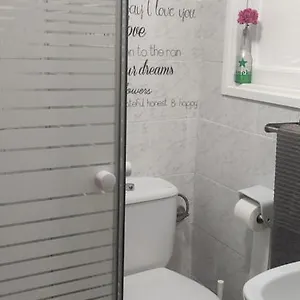 say I love you
love
on to the rain
ur dreams
flowers
ateful honest & happy